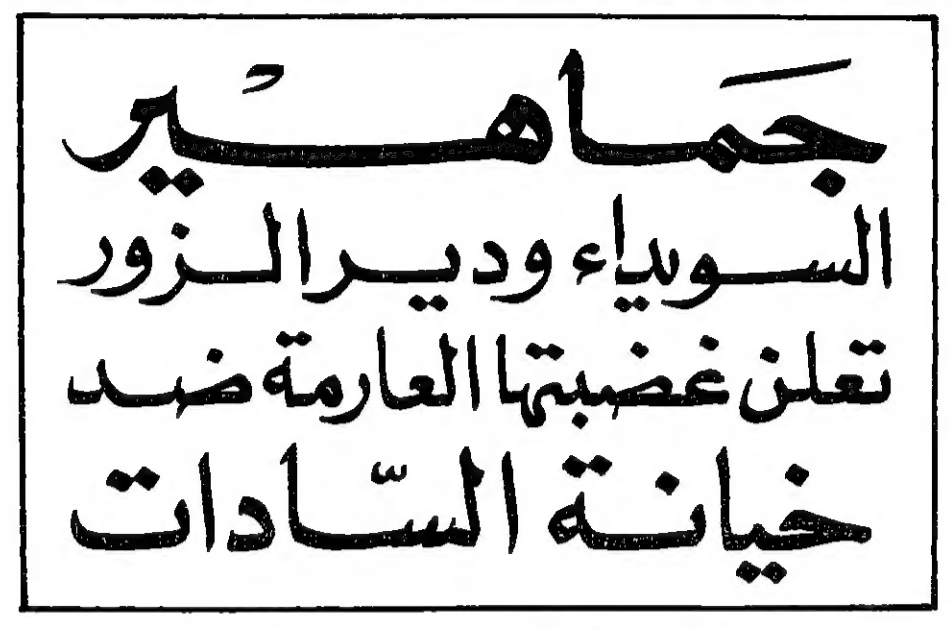 جَماهيْر
السويداء ودير الزور
تعلن غضبتها العارمة ضد
خيانة السّادات